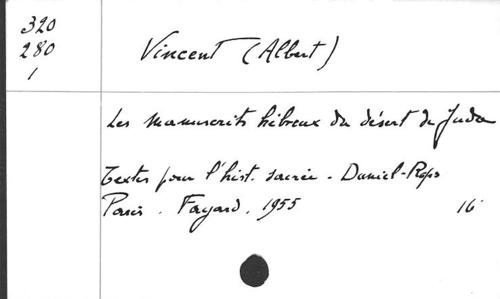 320
280
1
Vincent (Albert)
Les manuscrits hébreux du désert de Juda
Textes pour l'hist. sacrée - Daniel-Rops
Paris. Fayard. 1955 16